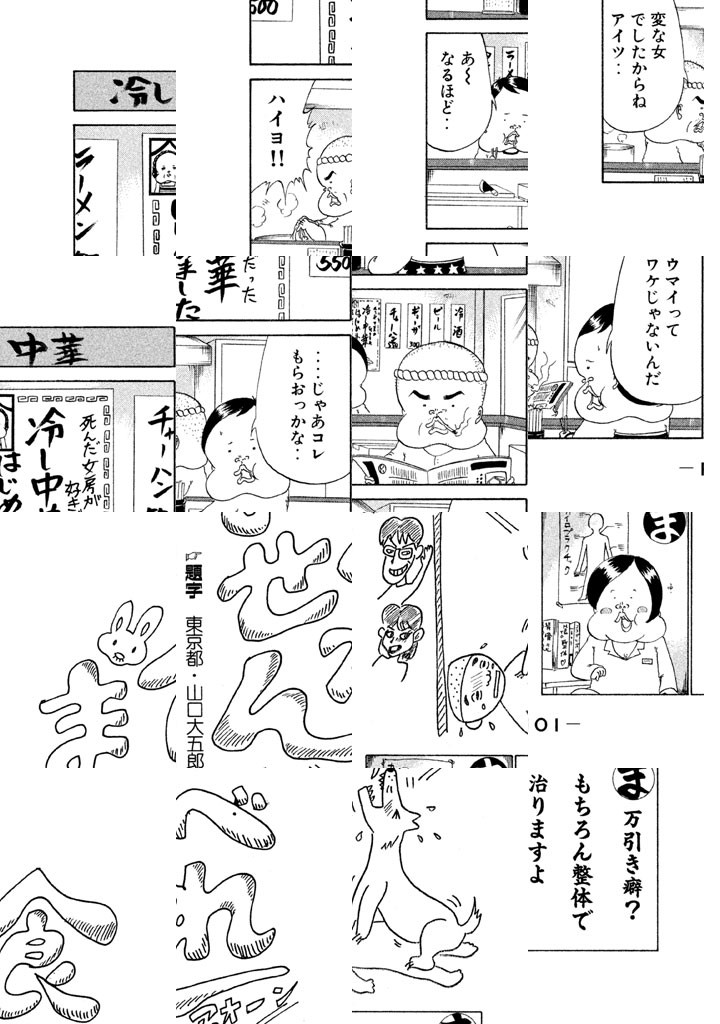 500
変な女
でしたからね
アイツ‥
あ～
なるほど‥
ハイヨ!!
冷し
ラーメン
550
だった
華
ました
ウマイって
ワケじゃないんだ
冷酒
ビール
中華
‥‥じゃあコレ
もらおっかな‥
チャーハン
死んだ女房が
好き
冷し中
はじめ
ま
せ
ん
☞題字 東京都・山口大五郎
ま
01—
食
べ
れ
アォーン
ま
万引き癖?
もちろん整体で
治りますよ